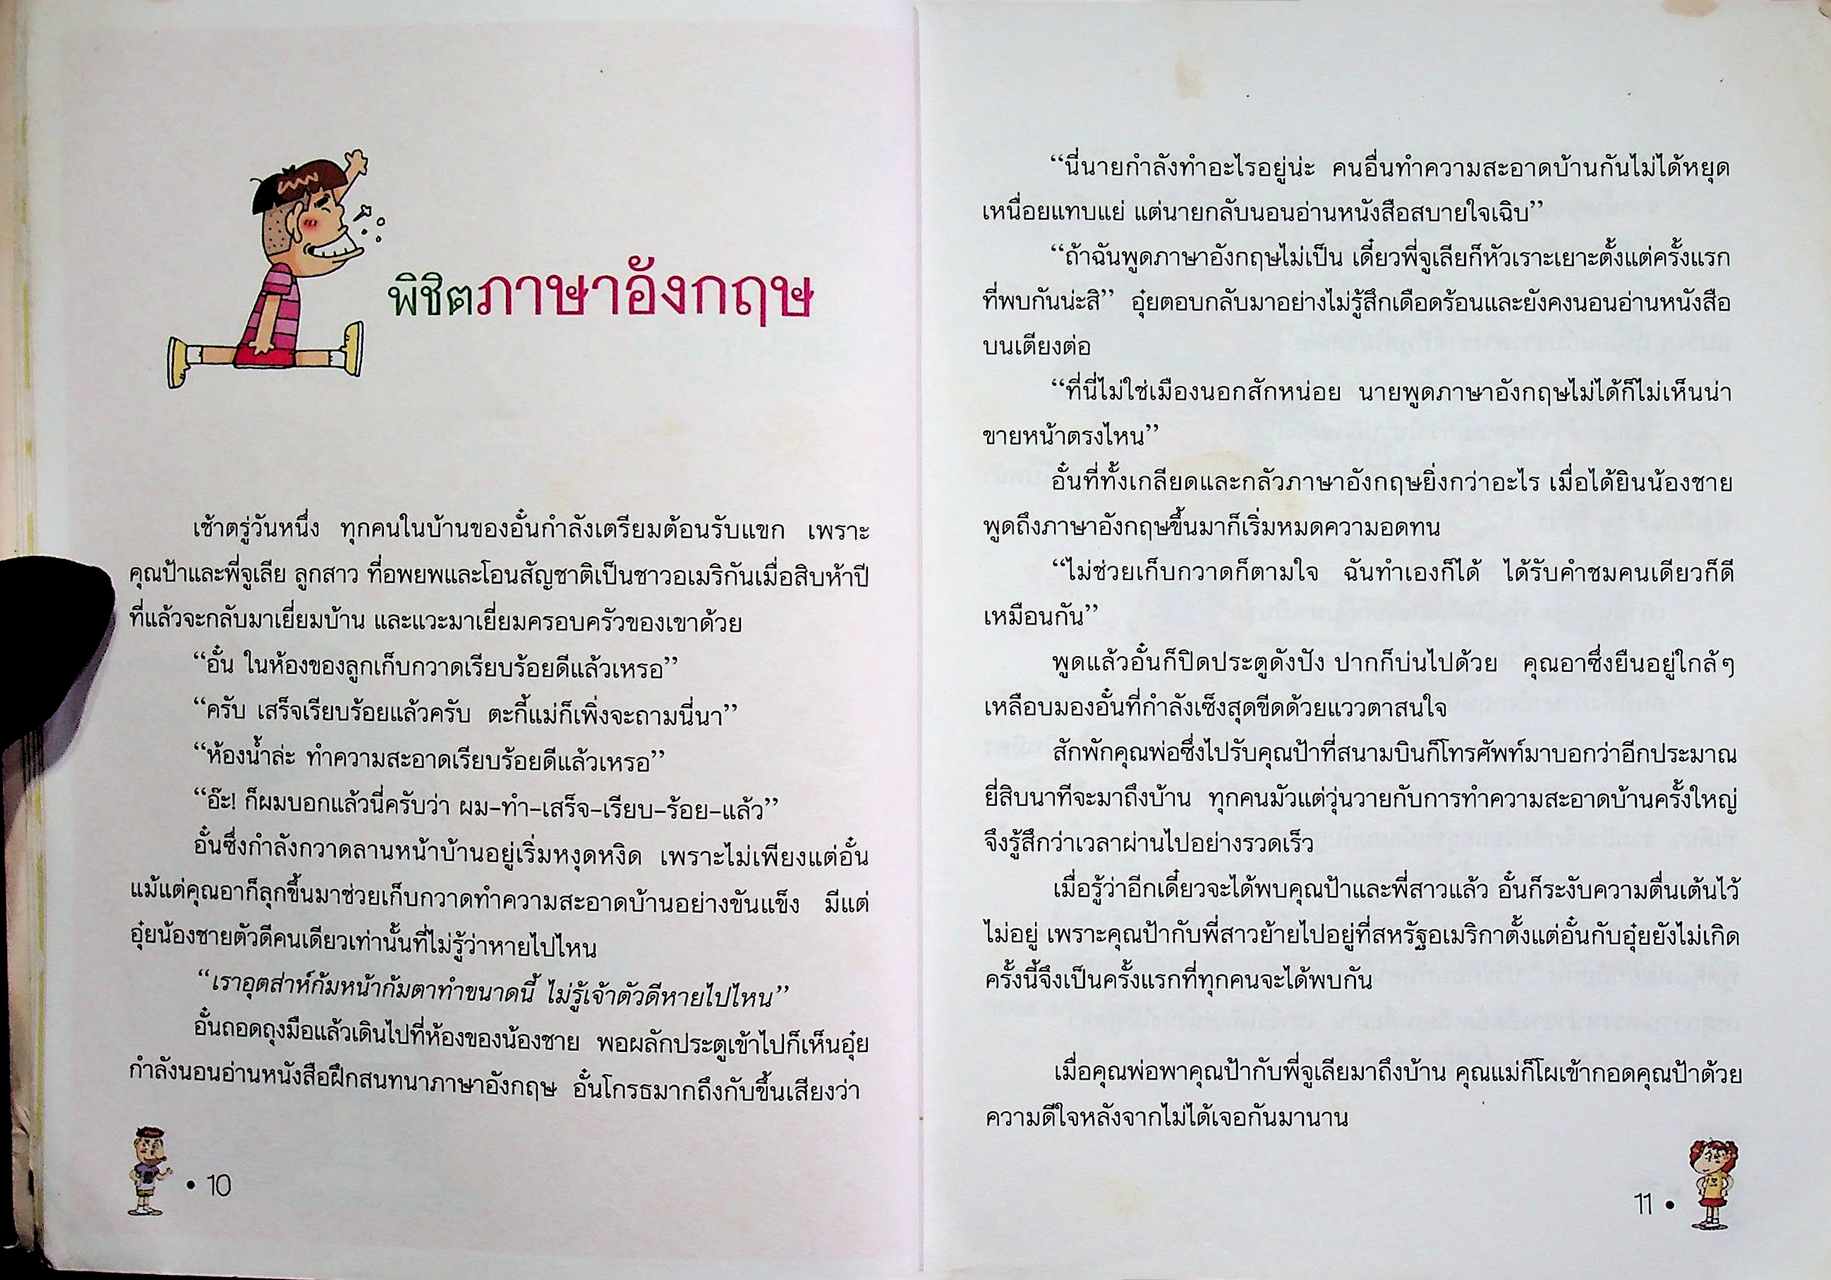 พิชิตภาษาอังกฤษ
เช้าตรู่วันหนึ่ง ทุกคนในบ้านของอั๋นกำลังเตรียมต้อนรับแขก เพราะ
คุณป้าและพี่จูเลีย ลูกสาว ที่อพยพและโอนสัญชาติเป็นชาวอเมริกันเมื่อสิบห้าปี
ที่แล้วจะกลับมาเยี่ยมบ้าน และแวะมาเยี่ยมครอบครัวของเขาด้วย
“อั๋น ในห้องของลูกเก็บกวาดเรียบร้อยดีแล้วเหรอ”
“ครับ เสร็จเรียบร้อยแล้วครับ ตะกี้แม่ก็เพิ่งจะถามนี่นา”
“ห้องน้ำล่ะ ทำความสะอาดเรียบร้อยดีแล้วเหรอ”
“อ๊ะ! ก็ผมบอกแล้วนี่ครับว่า ผม-ทำ-เสร็จ-เรียบ-ร้อย-แล้ว”
อั๋นซึ่งกำลังกวาดลานหน้าบ้านอยู่เริ่มหงุดหงิด เพราะไม่เพียงแต่อั๋น
แม้แต่คุณอาก็ลุกขึ้นมาช่วยเก็บกวาดทำความสะอาดบ้านอย่างขันแข็ง มีแต่
อุ๋ยน้องชายตัวดีคนเดียวเท่านั้นที่ไม่รู้ว่าหายไปไหน
“เราอุตส่าห์ก้มหน้าก้มตาทำขนาดนี้ ไม่รู้เจ้าตัวดีหายไปไหน”
อั๋นถอดถุงมือแล้วเดินไปที่ห้องของน้องชาย พอผลักประตูเข้าไปก็เห็นอุ๋ย
กำลังนอนอ่านหนังสือฝึกสนทนาภาษาอังกฤษ อั๋นโกรธมากถึงกับขึ้นเสียงว่า
• 10
“นี่นายกำลังทำอะไรอยู่น่ะ คนอื่นทำความสะอาดบ้านกันไม่ได้หยุด
เหนื่อยแทบแย่ แต่นายกลับนอนอ่านหนังสือสบายใจเฉิบ”
“ถ้าฉันพูดภาษาอังกฤษไม่เป็น เดี๋ยวพี่จูเลียก็หัวเราะเยาะตั้งแต่ครั้งแรก
ที่พบกันน่ะสิ” อุ๋ยตอบกลับมาอย่างไม่รู้สึกเดือดร้อนและยังคงนอนอ่านหนังสือ
บนเตียงต่อ
“ที่นี่ไม่ใช่เมืองนอกสักหน่อย นายพูดภาษาอังกฤษไม่ได้ก็ไม่เห็นน่า
ขายหน้าตรงไหน”
อั๋นที่ทั้งเกลียดและกลัวภาษาอังกฤษยิ่งกว่าอะไร เมื่อได้ยินน้องชาย
พูดถึงภาษาอังกฤษขึ้นมาก็เริ่มหมดความอดทน
“ไม่ช่วยเก็บกวาดก็ตามใจ ฉันทำเองก็ได้ ได้รับคำชมคนเดียวก็ดี
เหมือนกัน”
พูดแล้วอั๋นก็ปิดประตูดังปัง ปากก็บ่นไปด้วย คุณอาซึ่งยืนอยู่ใกล้ๆ
เหลือบมองอั๋นที่กำลังเซ็งสุดขีดด้วยแววตาสนใจ
สักพักคุณพ่อซึ่งไปรับคุณป้าที่สนามบินก็โทรศัพท์มาบอกว่าอีกประมาณ
ยี่สิบนาทีจะมาถึงบ้าน ทุกคนมัวแต่วุ่นวายกับการทำความสะอาดบ้านครั้งใหญ่
จึงรู้สึกว่าเวลาผ่านไปอย่างรวดเร็ว
เมื่อรู้ว่าอีกเดี๋ยวจะได้พบคุณป้าและพี่สาวแล้ว อั๋นก็ระงับความตื่นเต้นไว้
ไม่อยู่ เพราะคุณป้ากับพี่สาวย้ายไปอยู่ที่สหรัฐอเมริกาตั้งแต่อั๋นกับอุ๋ยยังไม่เกิด
ครั้งนี้จึงเป็นครั้งแรกที่ทุกคนจะได้พบกัน
เมื่อคุณพ่อพาคุณป้ากับพี่จูเลียมาถึงบ้าน คุณแม่ก็โผเข้ากอดคุณป้าด้วย
ความดีใจหลังจากไม่ได้เจอกันมานาน
11 •